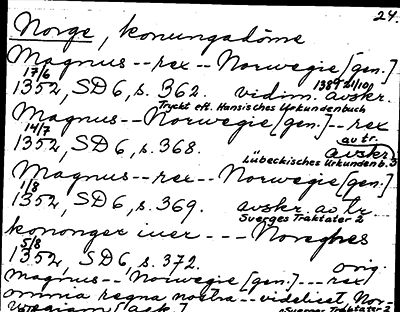 24.
Norge, konungadöme
Magnus--rex--Norwegie [gen.]
17/6 1389 21/10
1352, SD6, s. 362. vidim. avskr.
Tryckt eft. Hansisches Urkundenbuch
Magnus--Norwegie [gen.]--rex
14/7 av tr.
1352, SD6, s. 368. avskr.
Lübeckisches Urkundenb. 3
Magnus--rex--Norwegie [gen.]
1/8
1352, SD6, s. 369. avskr. av tr
Sverges Traktater 2
kononger iuer --- Noreghes
5/8
1352, SD6, s. 372. orig.
Magnus--Norwegie [gen.]---rex
Sverges Traktater 2
omnia regna nostra--videlicet Nor-
wegiam [ack.]